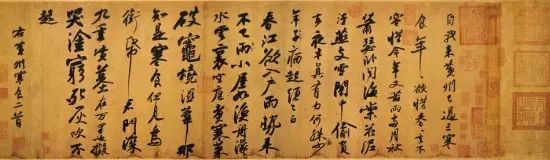 自我來黃州已過三寒
食年々欲惜春春去不
容惜今年又苦雨兩月秋
蕭瑟臥聞海棠花泥
汙燕支雪闇中偷負
去夜半真有力何殊少
年子病起頭已白
春江欲入戶雨勢來
不已小屋如漁舟濛々
水雲裏空庖煮寒菜
破竈燒濕葦那
知是寒食但見烏
銜帋君門深
九重墳墓在万里也擬
哭塗窮死灰吹不
起
右黃州寒食二首